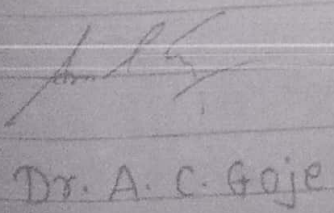 Dr. A. C. Goje